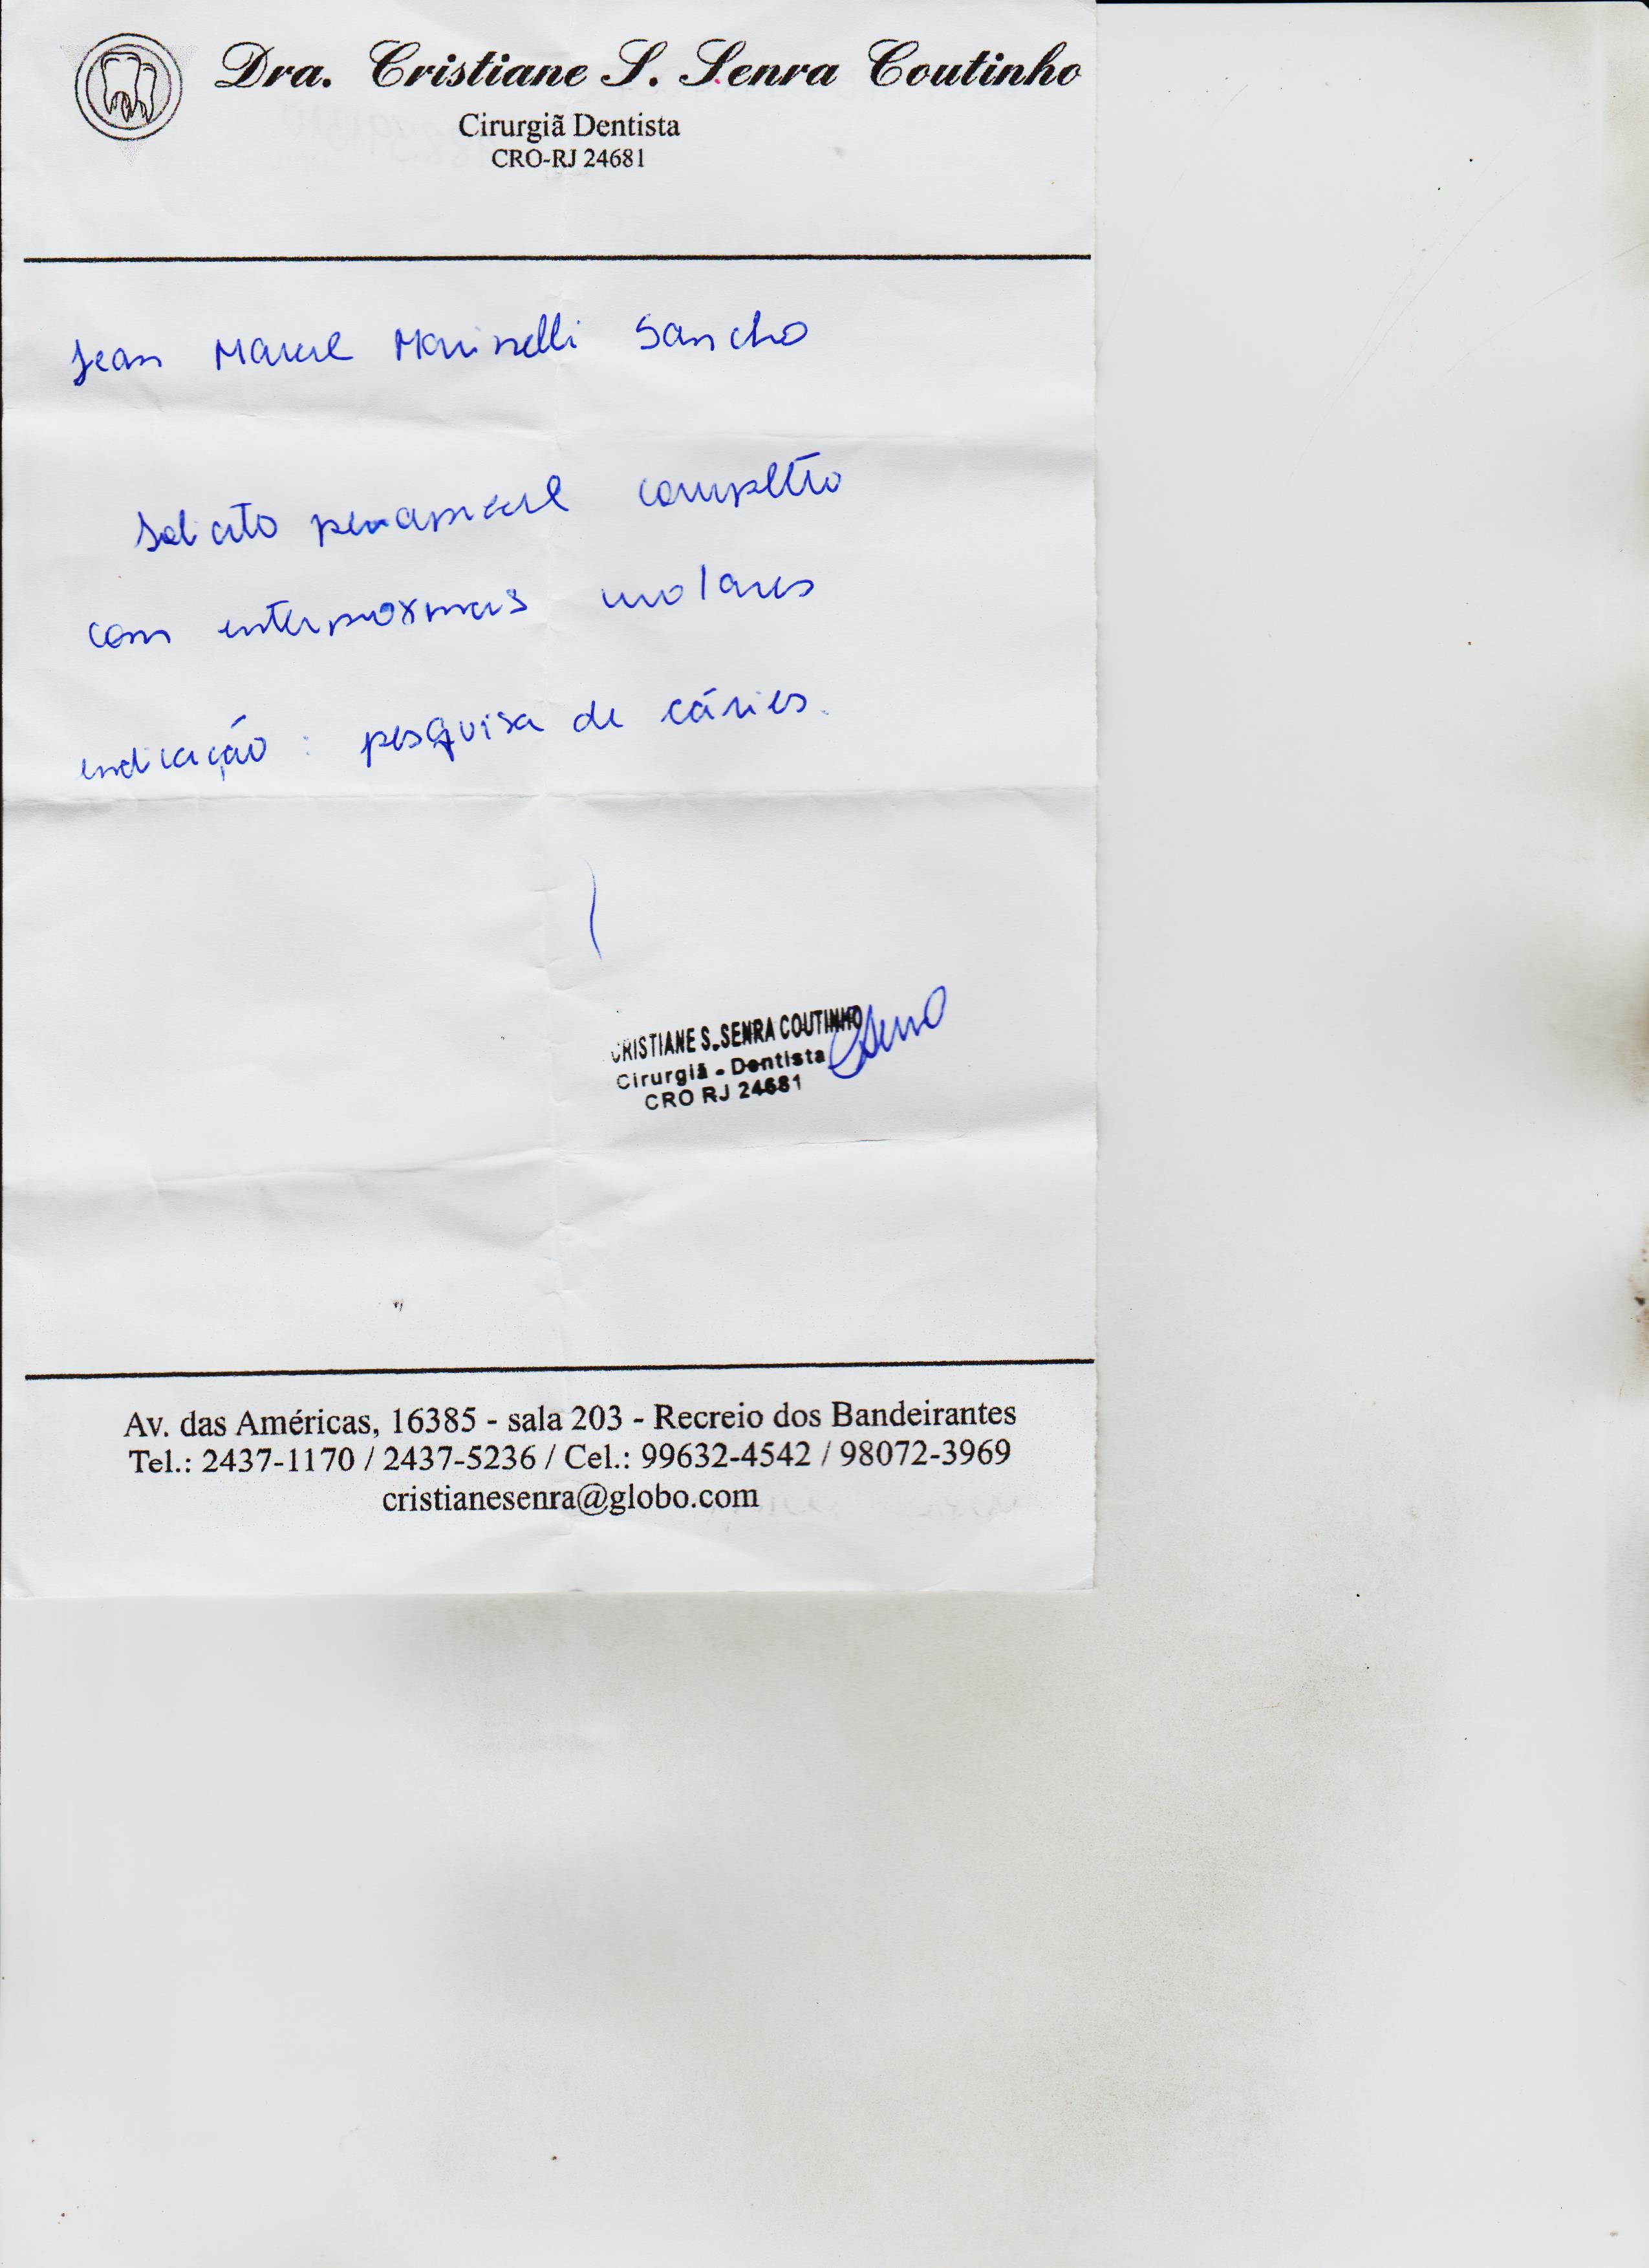 Dra. Cristiane S. Senra Coutinho
Cirurgiã Dentista
CRO-RJ 24681
Jean Marcel Sancho
Solicito periapical completo
com interproximais molares
indicação: pesquisa de cáries.
CRISTIANE S. SENRA COUTINHO
Cirurgiã - Dentista
CRO RJ 24681
Av. das Américas, 16385 - sala 203 - Recreio dos Bandeirantes
Tel.: 2437-1170 / 2437-5236 / Cel.: 99632-4542 / 98072-3969
cristianesenra@globo.com